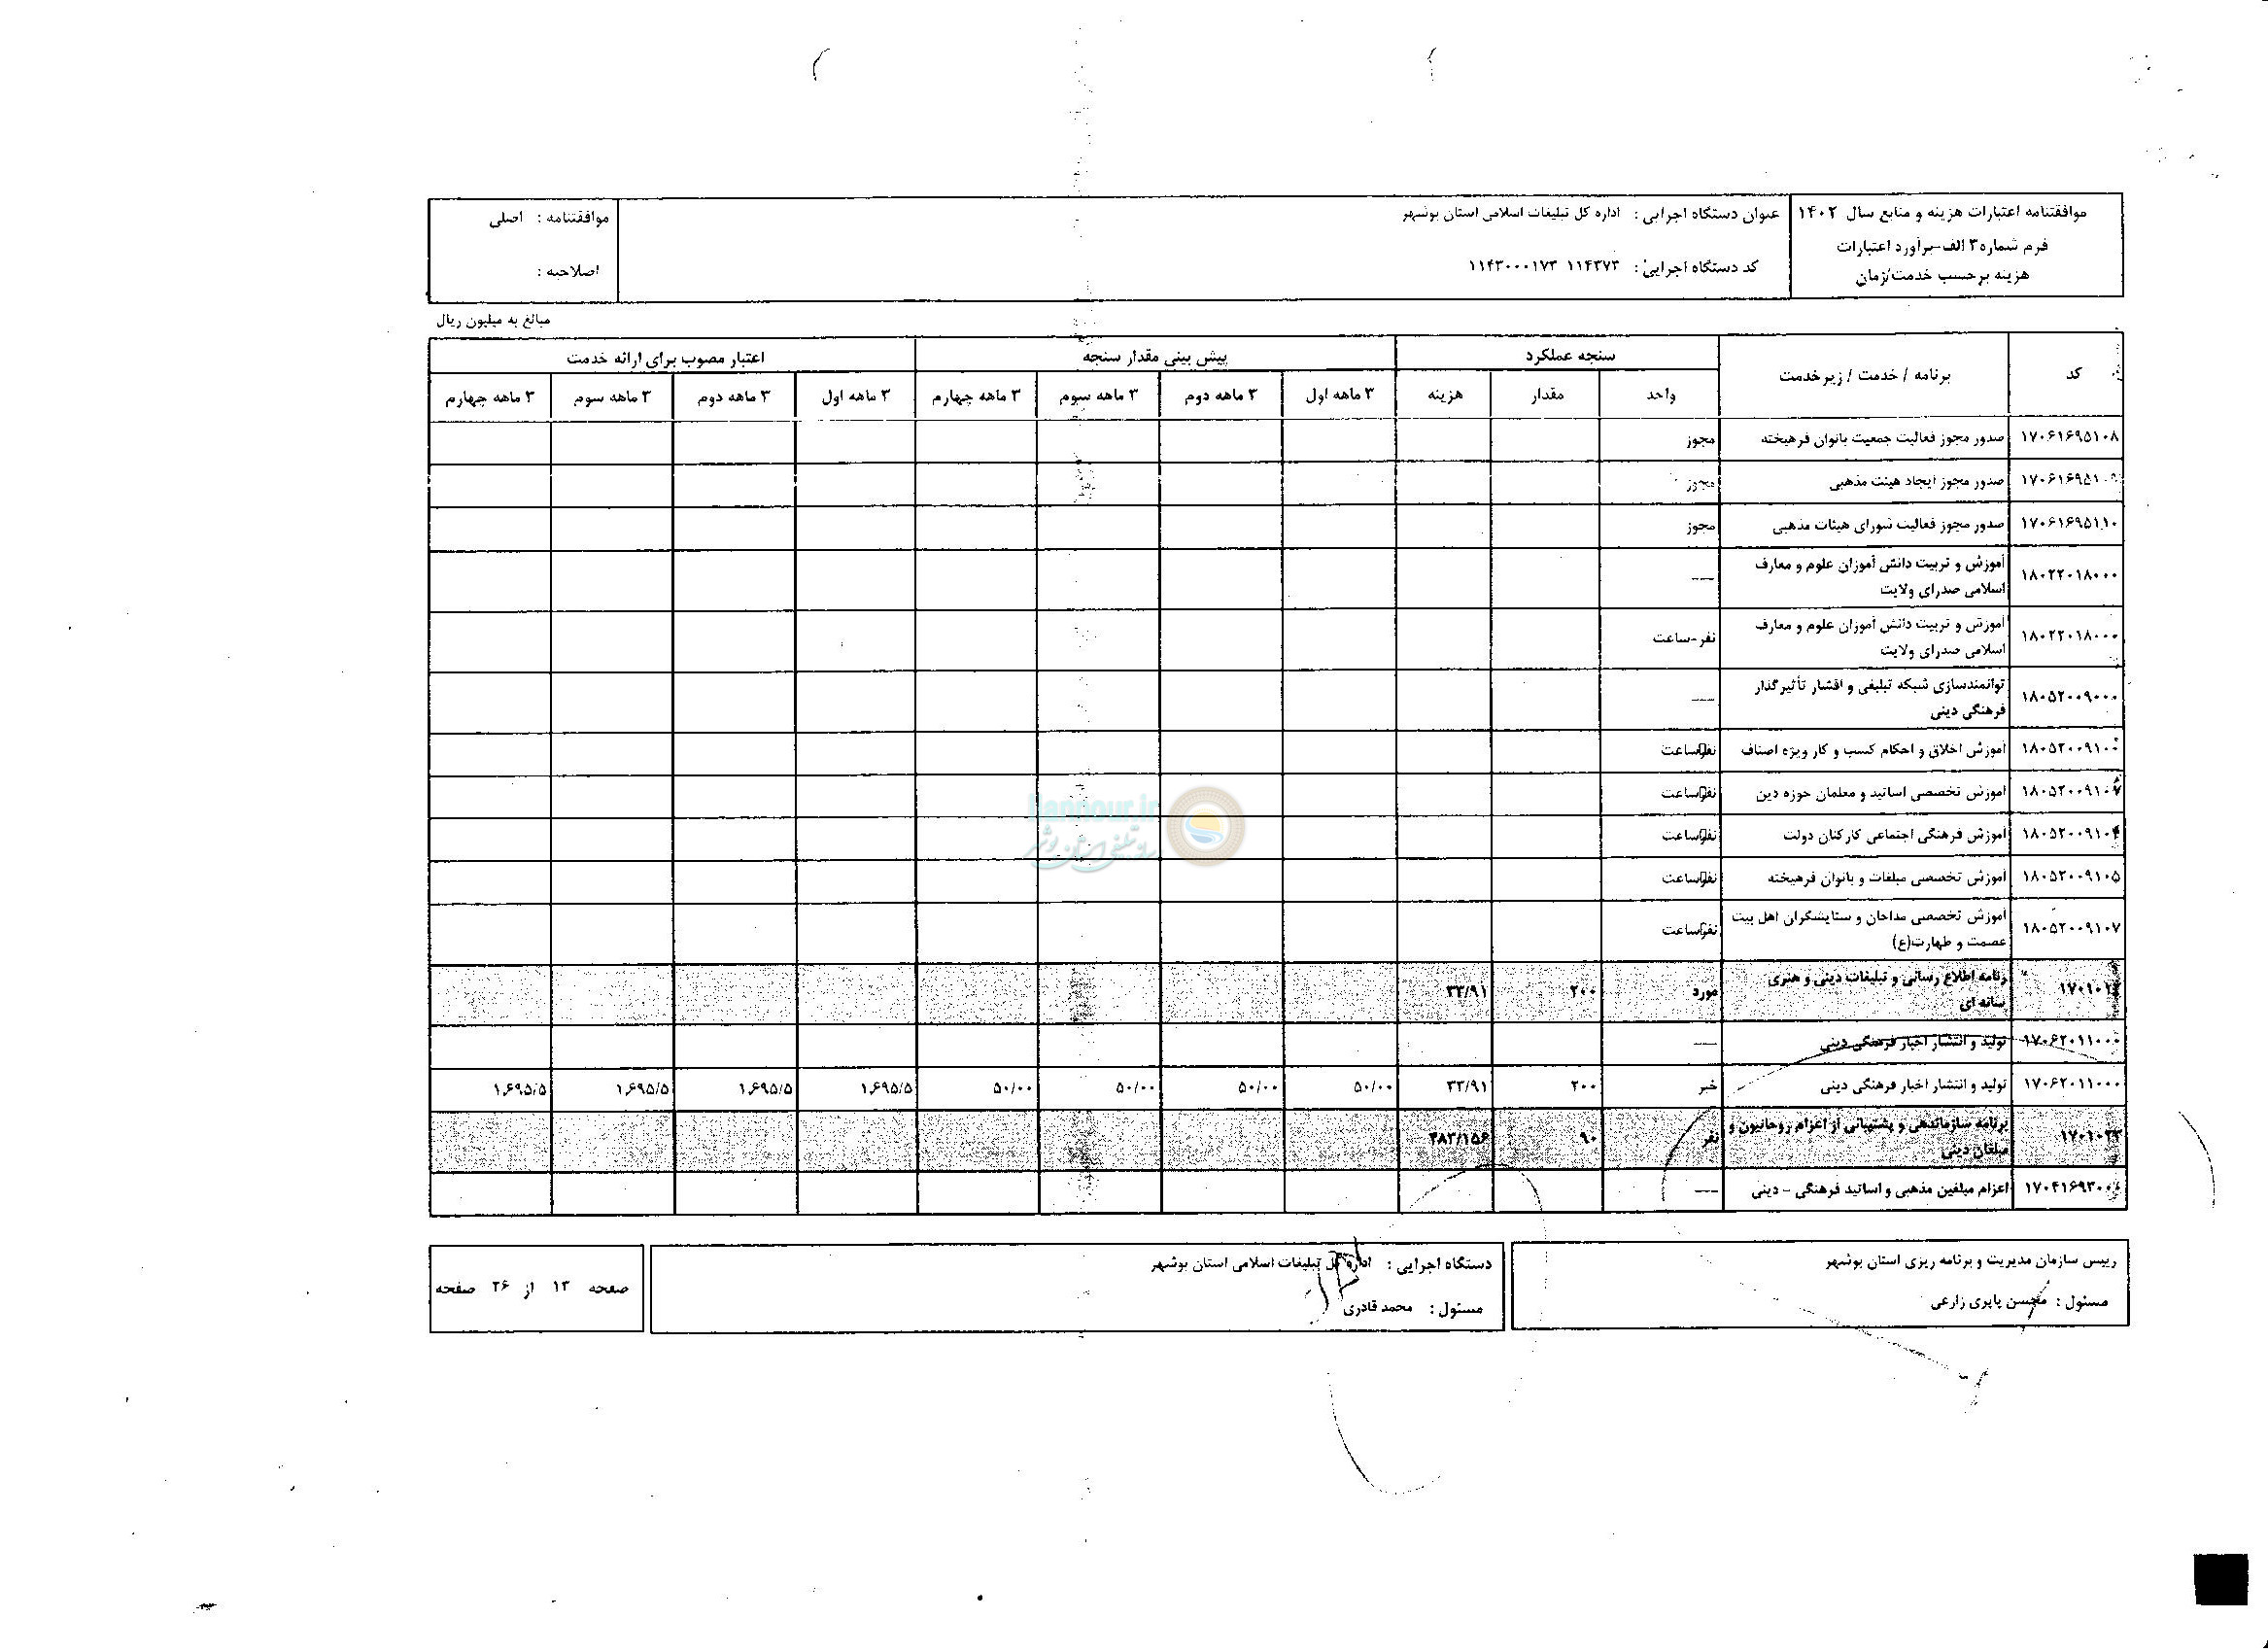 موافقتنامه اعتبارات هزینه و منابع سال ۱۴۰۲
فرم شماره ۳ الف-برآورد اعتبارات
هزینه برحسب خدمت/زمان
عنوان دستگاه اجرایی : اداره کل تبلیغات اسلامی استان بوشهر
کد دستگاه اجرایی : ۱۱۴۳۷۳ ۱۱۴۳۰۰۰۱۷۳
موافقتنامه : اصلی
اصلاحیه :
مبالغ به میلیون ریال
کد برنامه / خدمت / زیرخدمت سنجه عملکرد پیش بینی مقدار سنجه اعتبار مصوب برای ارائه خدمت
واحد مقدار هزینه ۳ ماهه اول ۳ ماهه دوم ۳ ماهه سوم ۳ ماهه چهارم ۳ ماهه اول ۳ ماهه دوم ۳ ماهه سوم ۳ ماهه چهارم
۱۷۰۶۱۶۹۵۱۰۸ صدور مجوز فعالیت جمعیت بانوان فرهیخته مجوز
۱۷۰۶۱۶۹۵۱۰۹ صدور مجوز ایجاد هیئت مذهبی مجوز
۱۷۰۶۱۶۹۵۱۱۰ صدور مجوز فعالیت شورای هیئات مذهبی مجوز
۱۸۰۲۲۰۱۸۰۰۰ آموزش و تربیت دانش آموزان علوم و معارف
اسلامی صدرای ولایت ---
۱۸۰۲۲۰۱۸۰۰۰ آموزش و تربیت دانش آموزان علوم و معارف
اسلامی صدرای ولایت نفر-ساعت
۱۸۰۵۲۰۰۹۰۰۰ توانمندسازی شبکه تبلیغی و اقشار تأثیرگذار
فرهنگی دینی ---
آموزش اخلاق و احکام کسب و کار ویژه اصناف نفرساعت
آموزش تخصصی اساتید و معلمان حوزه دین نفرساعت
۱۸۰۵۲۰۰۹۱۰۴ آموزش فرهنگی اجتماعی کارکنان دولت نفرساعت
۱۸۰۵۲۰۰۹۱۰۵ آموزش تخصصی مبلغات و بانوان فرهیخته نفرساعت
۱۸۰۵۲۰۰۹۱۰۷ آموزش تخصصی مداحان و ستایشگران اهل بیت
عصمت و طهارت(ع) نفرساعت
رنامه اطلاع رسانی و تبلیغات دینی و هنری
سانه ای مورد ۲۰۰ ۳۳/۹۱
۱۷۰۶۲۰۱۱۰۰۰ تولید و انتشار اخبار فرهنگی دینی ---
۱۷۰۶۲۰۱۱۰۰۰ تولید و انتشار اخبار فرهنگی دینی خبر ۲۰۰ ۳۳/۹۱ ۵۰/۰۰ ۵۰/۰۰ ۵۰/۰۰ ۵۰/۰۰ ۱,۶۹۵/۵ ۱,۶۹۵/۵ ۱,۶۹۵/۵ ۱,۶۹۵/۵
برنامه سازماندهی و پشتیبانی از اعزام روحانیون و
مبلغان دینی نفر ۹۰
اعزام مبلغین مذهبی و اساتید فرهنگی - دینی ---
رییس سازمان مدیریت و برنامه ریزی استان بوشهر
مسئول : محسن پاپری زارعی
دستگاه اجرایی : اداره کل تبلیغات اسلامی استان بوشهر
مسئول : محمد قادری
صفحه ۱۳ از ۲۶ صفحه